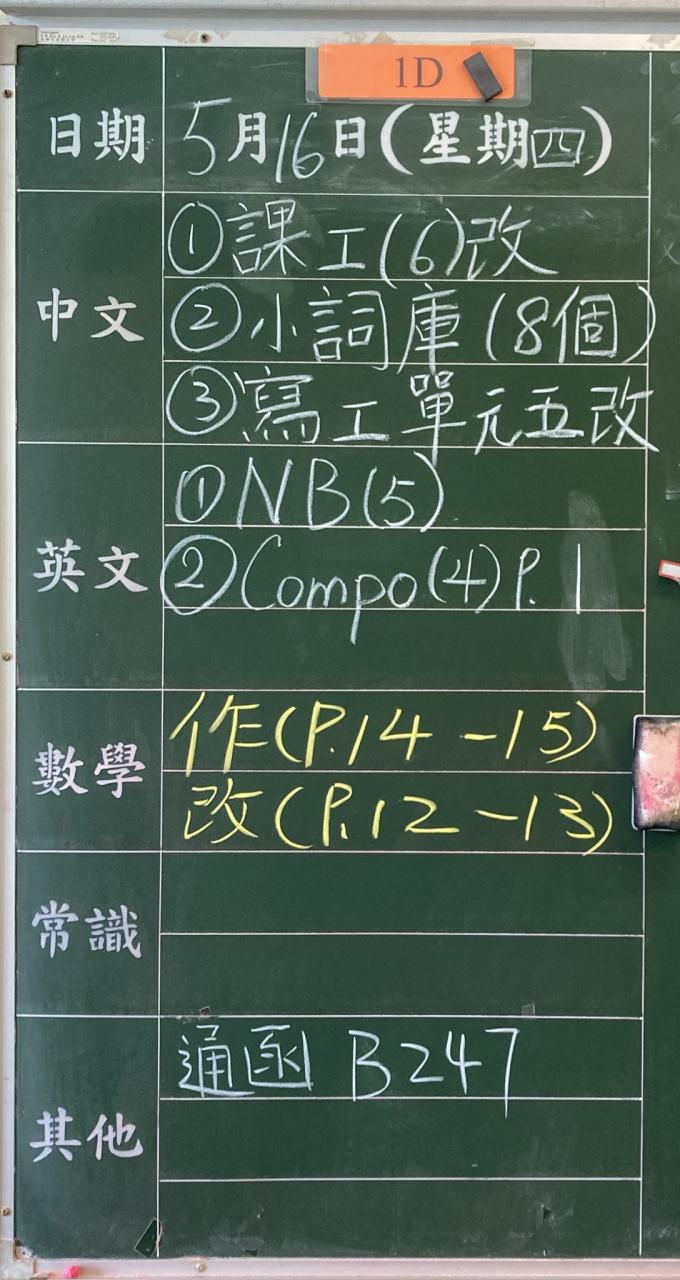 1D
日期 5月16日(星期四)
中文 ①課工(6)改
②小詞庫(8個)
③寫工單元五改
英文 ①NB(5)
②Compo(4)P.1
數學 作(P.14-15)
改(P.12-13)
常識
其他 通函 B247